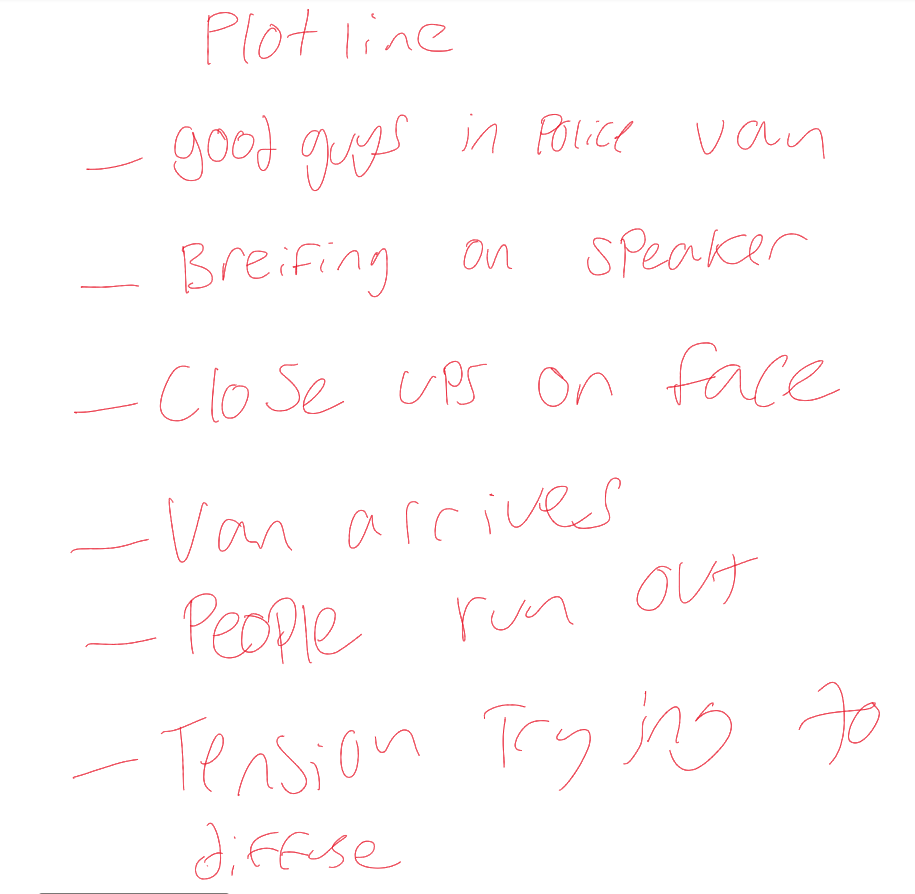 Plot line
- good guys in Police van
- Breifing on speaker
- Close ups on face
- Van arrives
- People run out
- Tension Trying to
diffuse